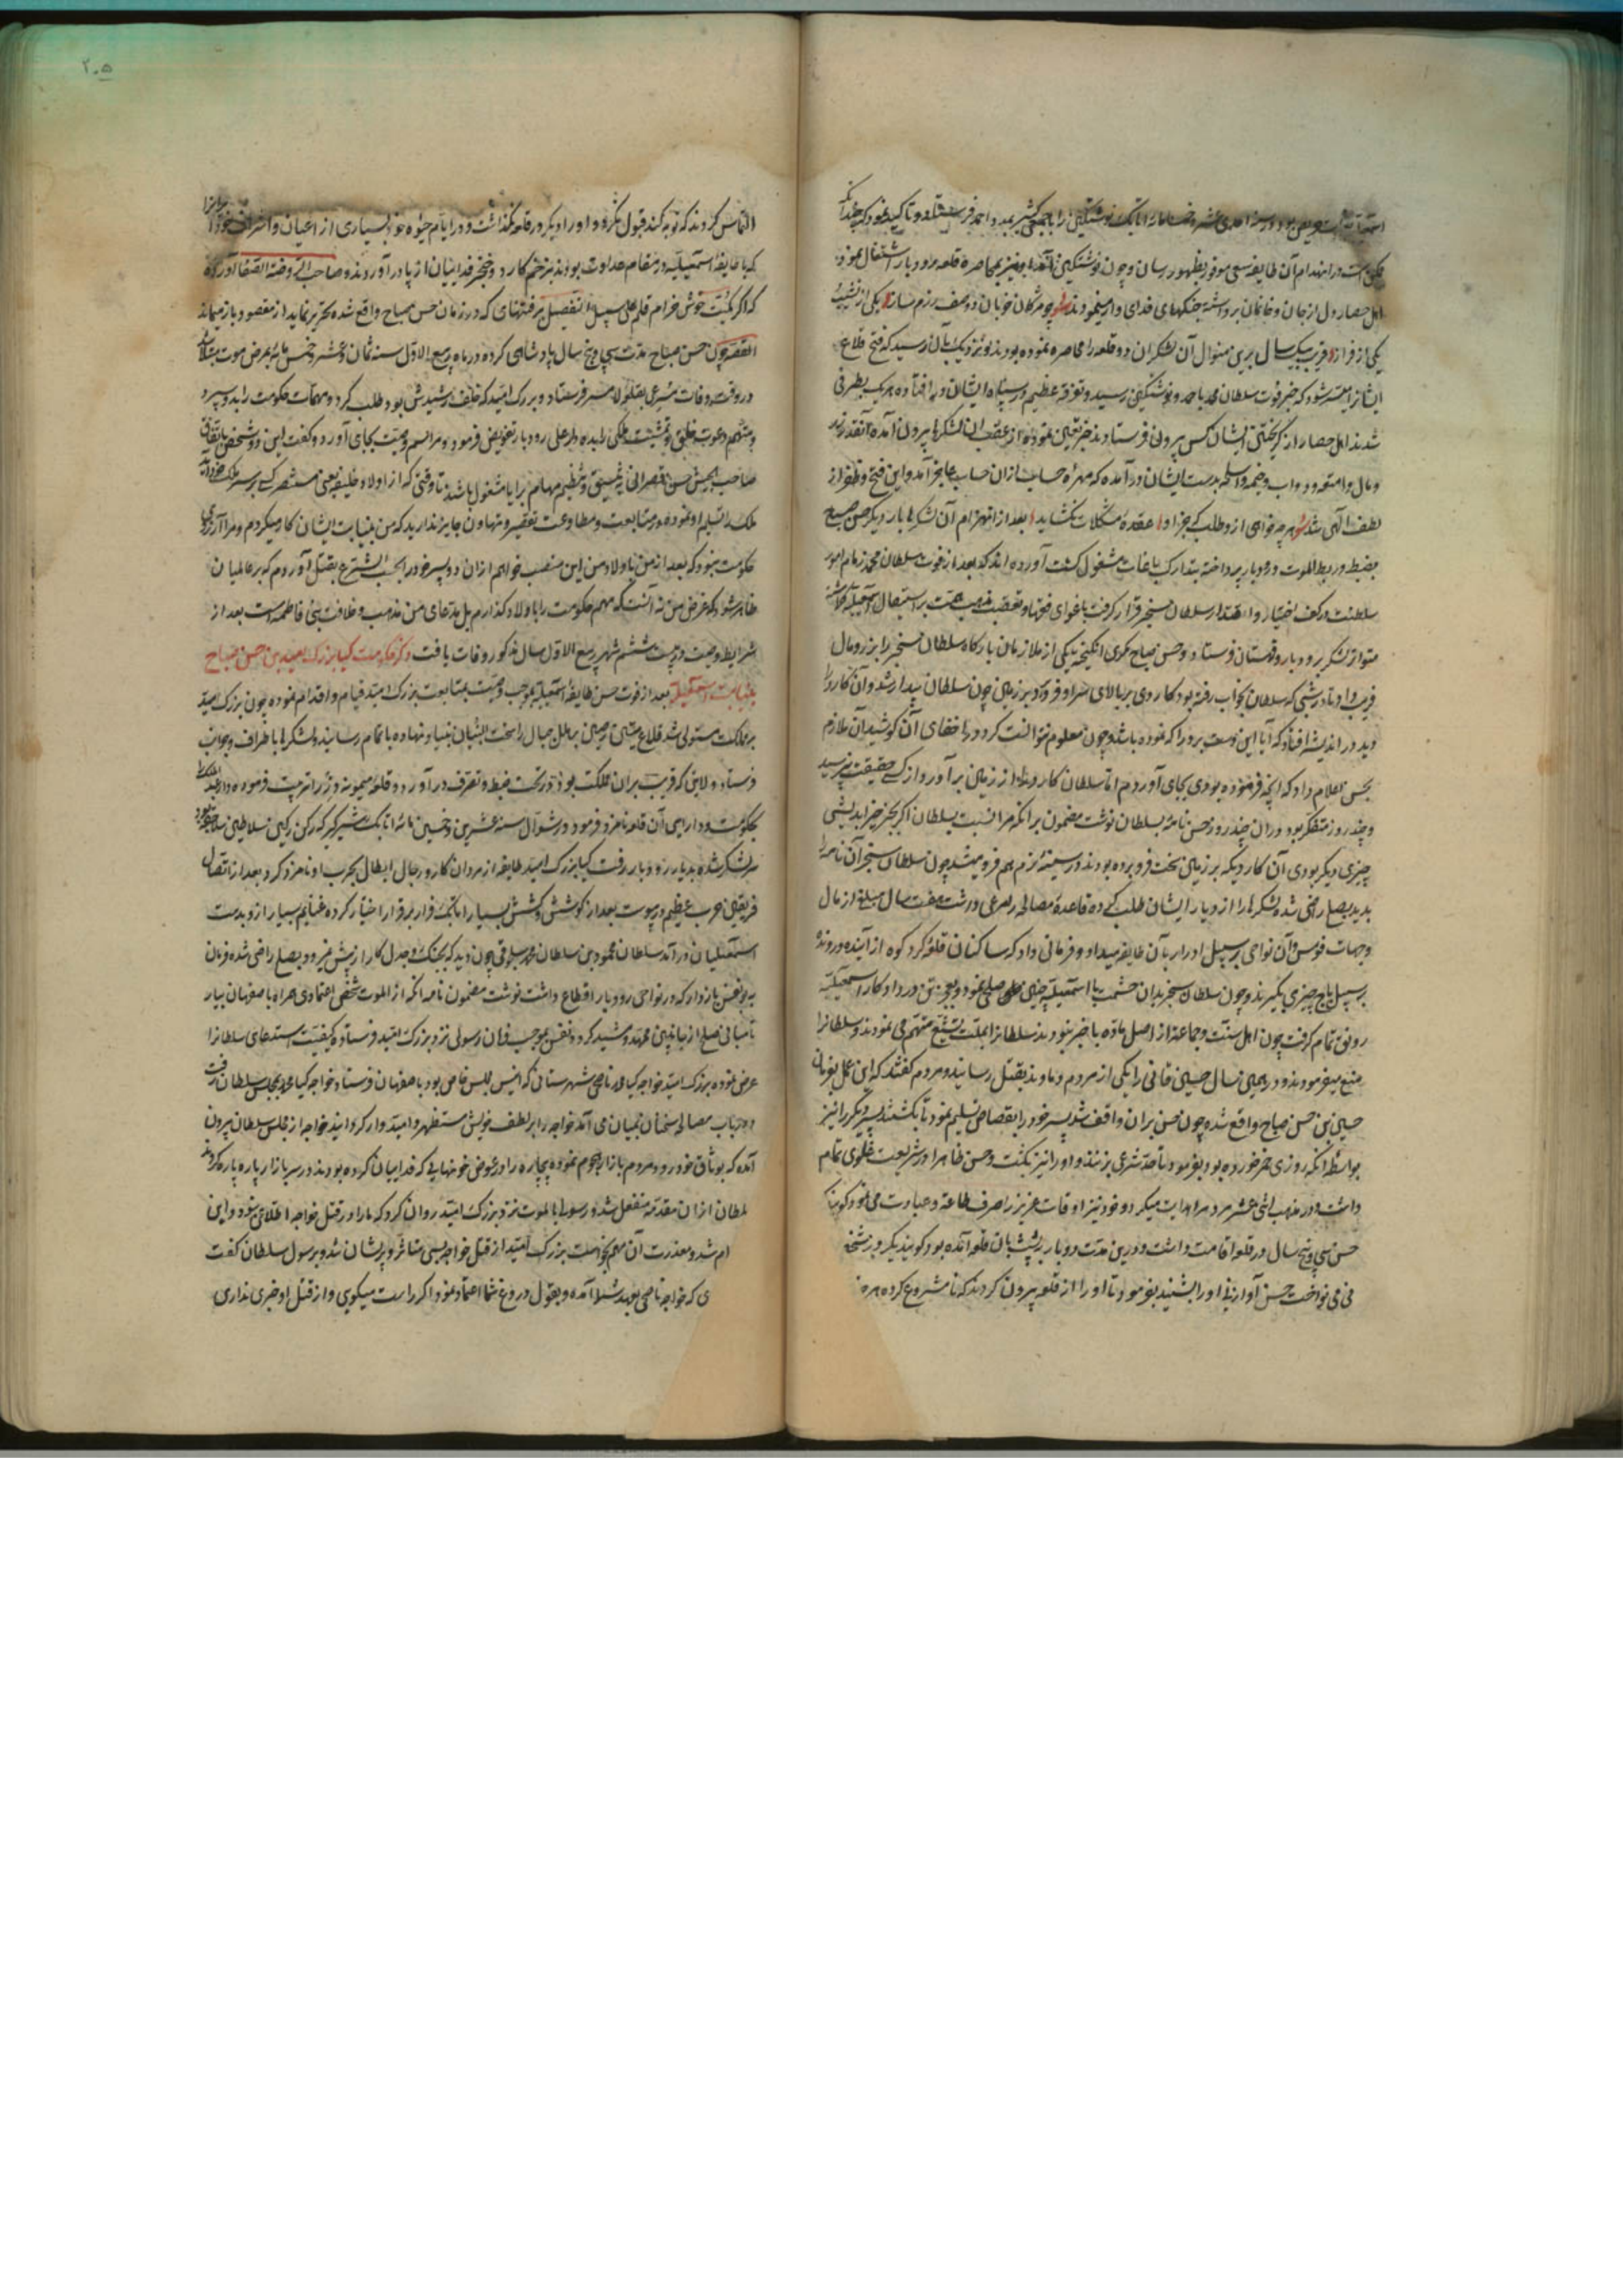 بود و در سنه احدی عشر و خمسمائه اتابک نوشتکین را با جمعی کثیر
در انهدام آن طایفه سعی موفور بظهور رسان و چون نوشتکین بمحاصره قلعه رودبار اشتغال نمود
اهل حصار دل از جان و خانمان برداشته جنکهای فدای وار مینمودند چو مژکان خوبان دو صف رزم ساز یکی از نشیب
یکی از فراز قریب یکسال برین منوال آن لشکریان دو قلعه را محاصره نموده بودند و نزدیک بآن رسید که فتح قلاع
ایشانرا میسر شود که خبر فوت سلطان محمد باحمد و نوشتکین رسید و تفرقه عظیم در سپاه ایشان در افتاده هر یک بطرفی
شدند اهل حصار از کریختن ایشان کس بیرون فرستادند خبر تعین نموده از عقب آن لشکرها بیرون آمده آنقدر زر
و مال و امتعه و دواب و خیمه و اسلحه بدست ایشان در آمده که مهره حساب از آن حساب عاجز آمد و این فتح و ظفر از
لطف الهی شد هر چه خواهی ازو طلب که جز او عقدهٔ مشکلات نکشاید بعد از انهزام آن لشکرها بار دیکر حسن صباح
بضبط و ربط الموت و رودبار پرداخته بتدارک باغات مشغول کشت آورده اند که بعد از فوت سلطان محمد زمام امور
سلطنت در کف اختیار و اقتدار سلطان سنجر قرار کرفت باغوای فقها و تعصب مذهب همت بر استیصال اسمعیلیه کماشته
متواتر لشکر برودبار و قهستان فرستاد و حسن صباح مکری انکیخته یکی از ملازمان بارکاه سلطان سنجر را بزر و مال
فریب داد تا در شبی که سلطان بخواب رفته بود کاردی بر بالای سر او فرو کرد بر زمین چون سلطان بیدار شد و آن کارد را
دید در اندیشه افتاد که آیا این دست برد را که نموده باشد و چون معلوم نتوانست کرد در اخفای آن کوشید آن ملازم
بحسن اعلام داد که آنچه فرموده بودی بجای آوردم اما سلطان کارد را از زمین بر آورد و از کسی حقیقت نپرسید
و چند روز متفکر بود در آن چند روز حسن نامهٔ بسلطان نوشت مضمون بر آنکه مرا نسبت بسلطان اکر بجز خیر اندیشی
چیزی دیکر بودی آن کارد یکه بر زمین سخت فرو برده بودند در سینهٔ نرم هم فرو میشد چون سلطان سنجر آن نامه را
بدید بصلح راضی شده لشکرها را از دیار ایشان طلب کرده قاعدهٔ مصالحه را مرعی داشت هفت سال مبلغی از مال
و جهات قومس و آن نواحی بر سبیل ادرار بآن طایفه میداد و فرمانی داد که ساکنان قلعهٔ کردکوه از آینده و روندهٔ
بر سبیل باج چیزی بکیرند و چون سلطان سنجر بدان حشمت با اسمعیلیه چنین صلحی نمود و بعجز تن در داد کار اسمعیلیه
رونق تمام کرفت چون اهل سنت و جماعة از اصل ماده با خبر نبودند سلطانرا بملت تشیع متهم می نمودند و سلطانرا
منبع میفرمودند و در همین سال حسین قاینی را یکی از مردم دماوند بقتل رسانید و مردم کفتند که این عمل بفرمان
حسین بن حسن صباح واقع شده چون حسن بر آن واقف شد پسر خود را بقصاص تسلیم نمود تا بکشتند پسر دیکر را نیز
بواسطهٔ آنکه روزی خمر خورده بود بفرمود تا حد شرعی بزنند و او را نیز بکشت و حسن ظاهرا در شریعت غلوی تمام
داشت و در مذهب اثنی عشر مردم را هدایت میکرد و خود نیز اوقات عزیز را صرف طاعة و عبادت می نمود کویند که
حسن سی و پنج سال در قلعه اقامت داشت و در این مدت دو بار بر پشت بان قلعه آمده بود کویند یکروز شخصی
نی می نواخت حسن آواز نی او را بشنید بفرمود تا او را از قلعه بیرون کردند که نا مشروع کرده هر چند
۲۰۵
التماس کردند که توبه کند قبول نکرد و او را دیکر در قلعه نکذاشت و در ایام حیوة خود بسیاری از اعیان و اشراف
که با طایفهٔ اسمعیلیه در مقام عداوت بودند بزخم کارد و خنجر فداییان از پا در آوردند و صاحب الروضة الصفا آورده
که اکر کمیت خوش خرام قلم علی سبیل التفصیل بر فتنهای که در زمان حسن صباح واقع شده تحریر نماید از مقصود باز میماند
القصه چون حسن صباح مدت سی و پنج سال پادشاهی کرده در ماه ربیع الاول سنه ثمان و عشر و خمس مایه بمرض موت مبتلا شد
در وقت وفات مسرعی بقلعهٔ لامسر فرستاد و بزرک امید که خلف رشیدش بود طلب کرد و مهمات حکومت را بدو سپرد
و مهم دعوت خلق و تمشیت ملکی را بده دار علی رودبار تفویض فرمود و مراسم وصیت بجای آورد و کفت این دو شخص باتفاق
صاحب الجیش حسن القصرانی بتنسیق و تنظیم مهام برایا مشغول باشند تا وقتی که از اولاد خلیفه یعنی مستنصر کسی بر سر ملک خود آید
ملک را تسلیم او نموده در متابعت و مطاوعت تقصیر و تهاون جایز ندارید که من بنیابت ایشان کار میکردم و مرا آرزوی
حکومت نبود که بعد از من باولاد من این منصب خواهم از آن دو پسر خود را بحسب الشرع بقتل آوردم که بر عالمیان
ظاهر شود که غرض من نه آنست که مهم حکومت را باولاد کذارم بل مدعای من مذهب و خلافت بنی فاطمه است بعد از
شرایط وصیت در بیست ششم شهر ربیع الاول سال مذکور وفات یافت ذکر حکومت کیا بزرک امید بن حسن صباح
بنیابت اسمعیلیه بعد از فوت حسن طایفهٔ اسمعیلیه بموجب وصیت بمتابعت بزرک امید قیام و اقدام نموده چون بزرک امید
بر مملکت مستولی شد قلاع متین رصین بر قلل جبال راسخت البنیان بنیاد نهاده باتمام رسانید و لشکرها باطراف و جوانب
فرستاد و لاین که قریب بر آن مملکت بود در تحت ضبط و تصرف در آورد و قلعهٔ میمونه دز را ترتیب فرموده و عبد الملک را
بحکومت و دارایی آن قلعه نامزد فرمود در شوال سنه عشرین و خمس مائه اتابک شیرکیر که رکن رکین سلاطین سلاجقه بود
سر لشکر شده بدیار رودبار رفت کیا بزرک امید طایفه از مردان کار و رجال ابطال بحرب او نامزد کرد بعد از اتصال
فریقین حرب عظیم در پیوست بعد از کوشش و کشش بسیار اتابک فرار بر قرار اختیار کرده غنایم بسیار ازو بدست
اسمعیلیان در آمد سلطان محمود بن سلطان محمد سلجوقی چون دید که بجنک و جدل کار از پیش نمیرود بصلح راضی شده فرمان
به یرنقش بازدار که در نواحی رودبار اقطاع داشت نوشت مضمون نامه آنکه از الموت شخص اعتمادی همراه باصفهان بیار
تا مبانی صلح از بیانی ممهد و مشید کرد و یرنقش بموجب فرمان رسولی نزد بزرک امید فرستاده کیفیت استدعای سلطانرا
عرض نموده بزرک امید خواجه کیا محمد ناصحی شهرستانی که انیس مجلس خاص بود باصفهان فرستاد و خواجه کیا محمد بمجلس سلطان رفت
در باب مصالحه سخنان بمیان می آمد خواجه را بر لطف خویش مستظهر و امیدوار کردانید خواجه از مجلس سلطان بیرون
آمده که بوثاق خود رود مردم بازار هجوم نموده بیچاره را در عوض خونهایی که فداییان کرده بودند در سر بازار پاره پاره کردند
سلطان از آن مقدمه منفعل شد و رسول بالموت نزد بزرک امید روان کرد که ما را در قتل خواجه اطلاعی نبود و این
ام شد و معذرت آن مهم بخواست بزرک امید از قتل خواجه بسی متاثر و پریشان شد و برسول سلطان کفت
که خواجه ناصحی بعهد شما آمده و بقول دروغ شما اعتماد نمود اکر راست میکویی و از قتل او خبری نداری